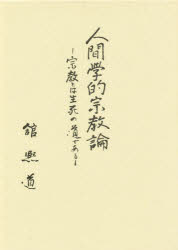 人間学的宗教論
－宗教とは生死の道である－
舘煕道